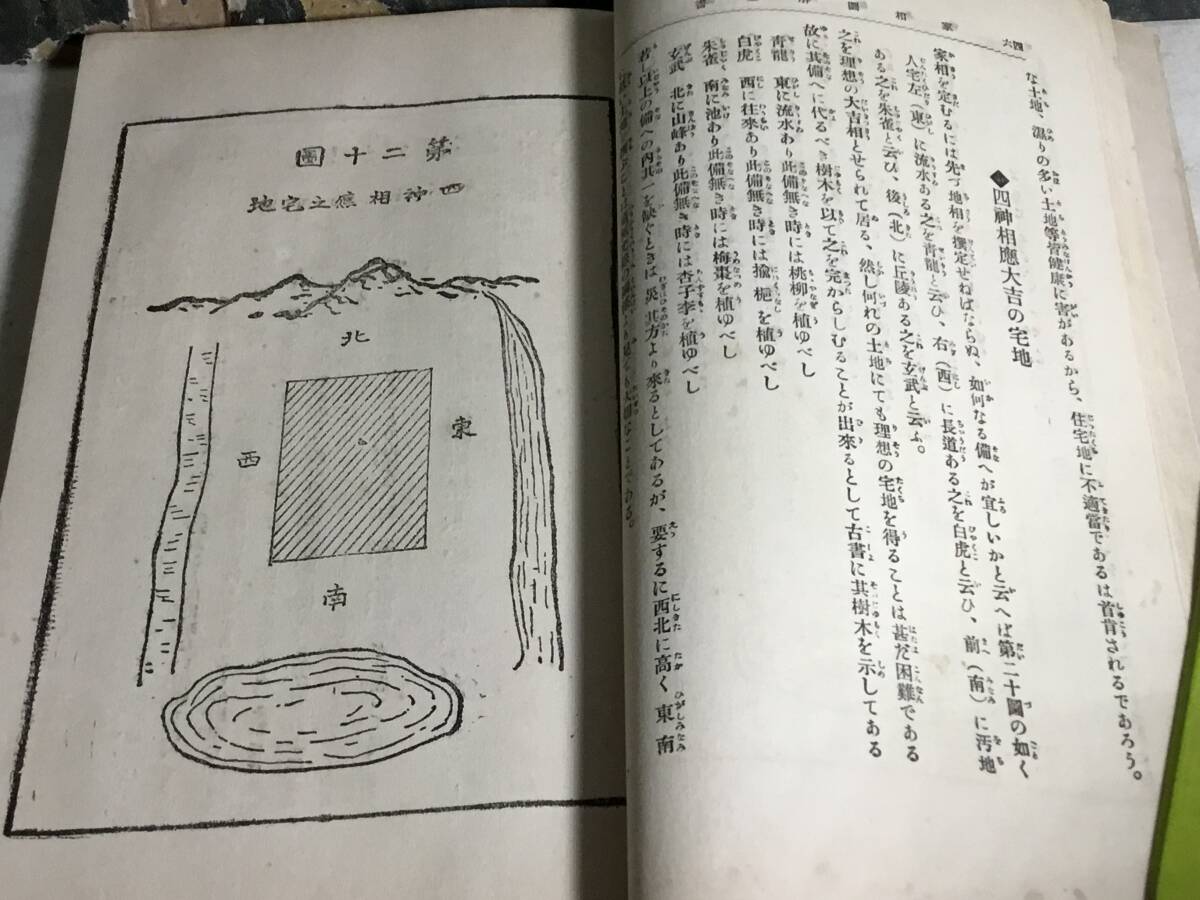 四六
な土地、濕りの多い土地等皆健康に害があるから、住宅地に不適當であるは首肯されるであろう。
◆四神相應大吉の宅地
家相を定むるには先づ地相を撰定せねばならぬ、如何なる備へが宜しいかと云へば第二十圖の如く
人宅左(東)に流水ある之を青龍と云ひ、右(西)に長道ある之を白虎と云ひ、前(南)に汚地
ある之を朱雀と云ひ、後(北)に丘陵ある之を玄武と云ふ。
之を理想の大吉相とせられて居る、然し何れの土地にても理想の宅地を得ることは甚だ困難である
故に其備へに代るべき樹木を以て之を完からしむることが出來るとして古書に其樹木を示してある
青龍 東に流水あり此備無き時には桃柳を植ゆべし
白虎 西に往來あり此備無き時には
を植ゆべし
朱雀 南に池あり此備無き時には梅棗を植ゆべし
玄武 北に山峰あり此備無き時には杏子李を植ゆべし
若し以上の備への内其一を缺ぐときは災其方より來るとしてあるが、要するに西北に高く東南
第二十圖
四神相應之宅地
北
東
西
南